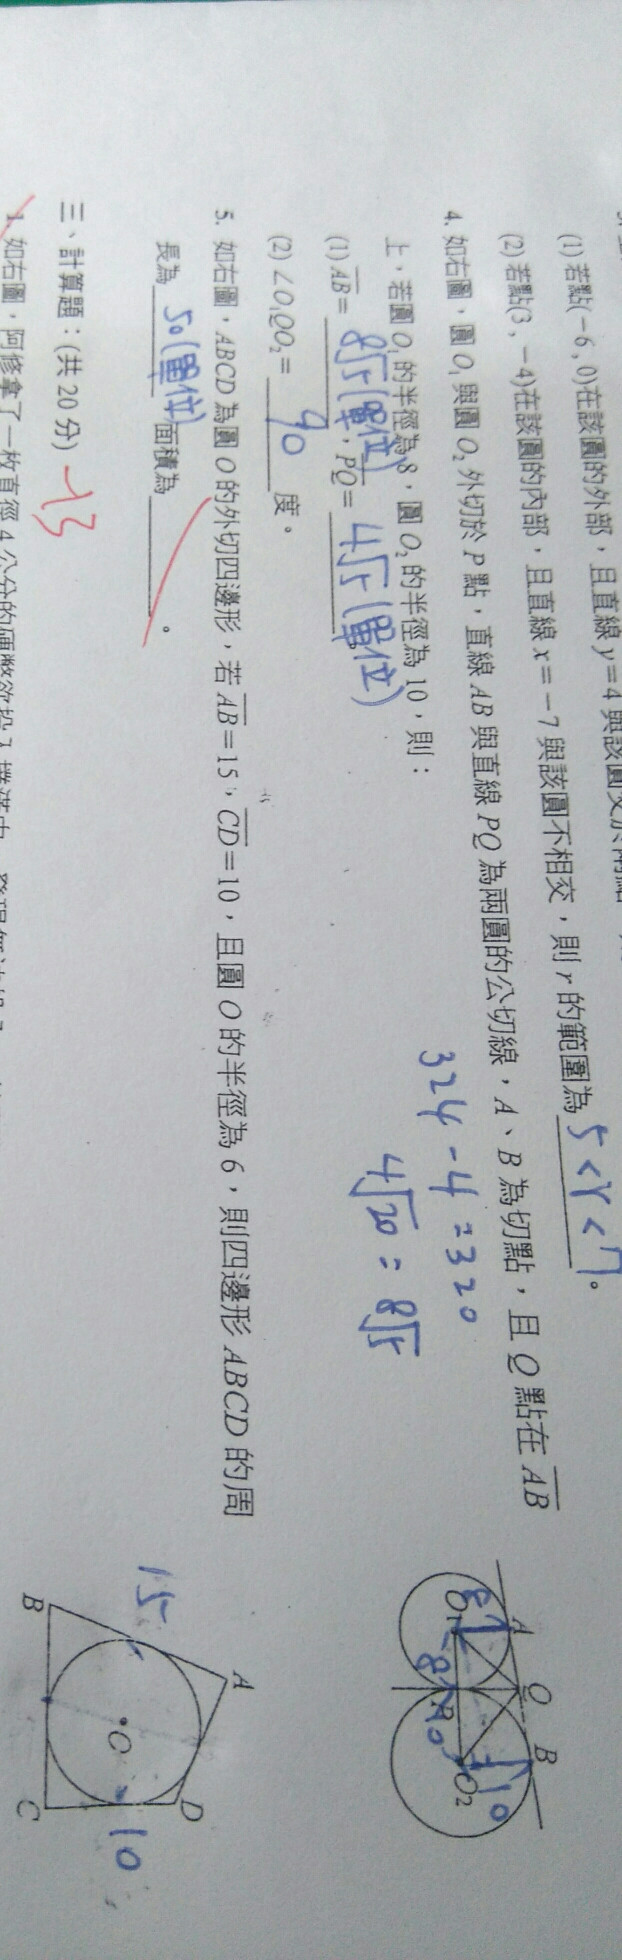 (1) 若點(－6 , 0)在該圓的外部，且直線 y＝4 與該圓交於兩點
(2) 若點(3 , －4)在該圓的內部，且直線 x＝－7 與該圓不相交，則 r 的範圍為 5＜r＜7。
4. 如右圖，圓 O₁ 與圓 O₂ 外切於 P 點，直線 AB 與直線 PQ 為兩圓的公切線，A、B 為切點，且 Q 點在 AB
上，若圓 O₁ 的半徑為 8，圓 O₂ 的半徑為 10，則：
(1) AB＝ 8√5(單位)，PQ＝ 4√5(單位)
(2) ∠O₁QO₂＝ 90 度。
324－4＝320
4√20＝8√5
A Q B
8
O₁ 8 P 10 O₂ 10
5. 如右圖，ABCD 為圓 O 的外切四邊形，若 AB＝15，CD＝10，且圓 O 的半徑為 6，則四邊形 ABCD 的周
長為 50(單位) 面積為 。
15 A
B O D
C 10
三、計算題：(共 20 分) －13
1. 如右圖，阿修拿了一枚直徑 4 公分的硬幣欲投入